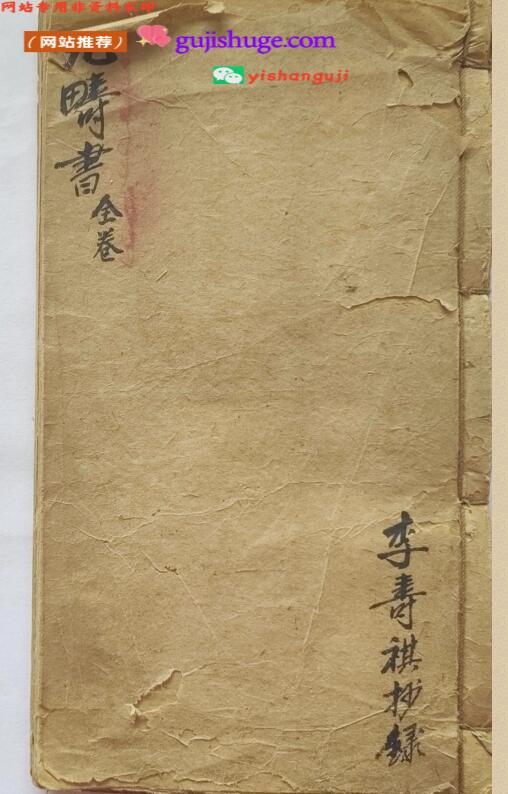 网站专用非资料水印
（网站推荐）
gujishuge.com
yishanguji
疇書
全卷
李壽祺抄錄